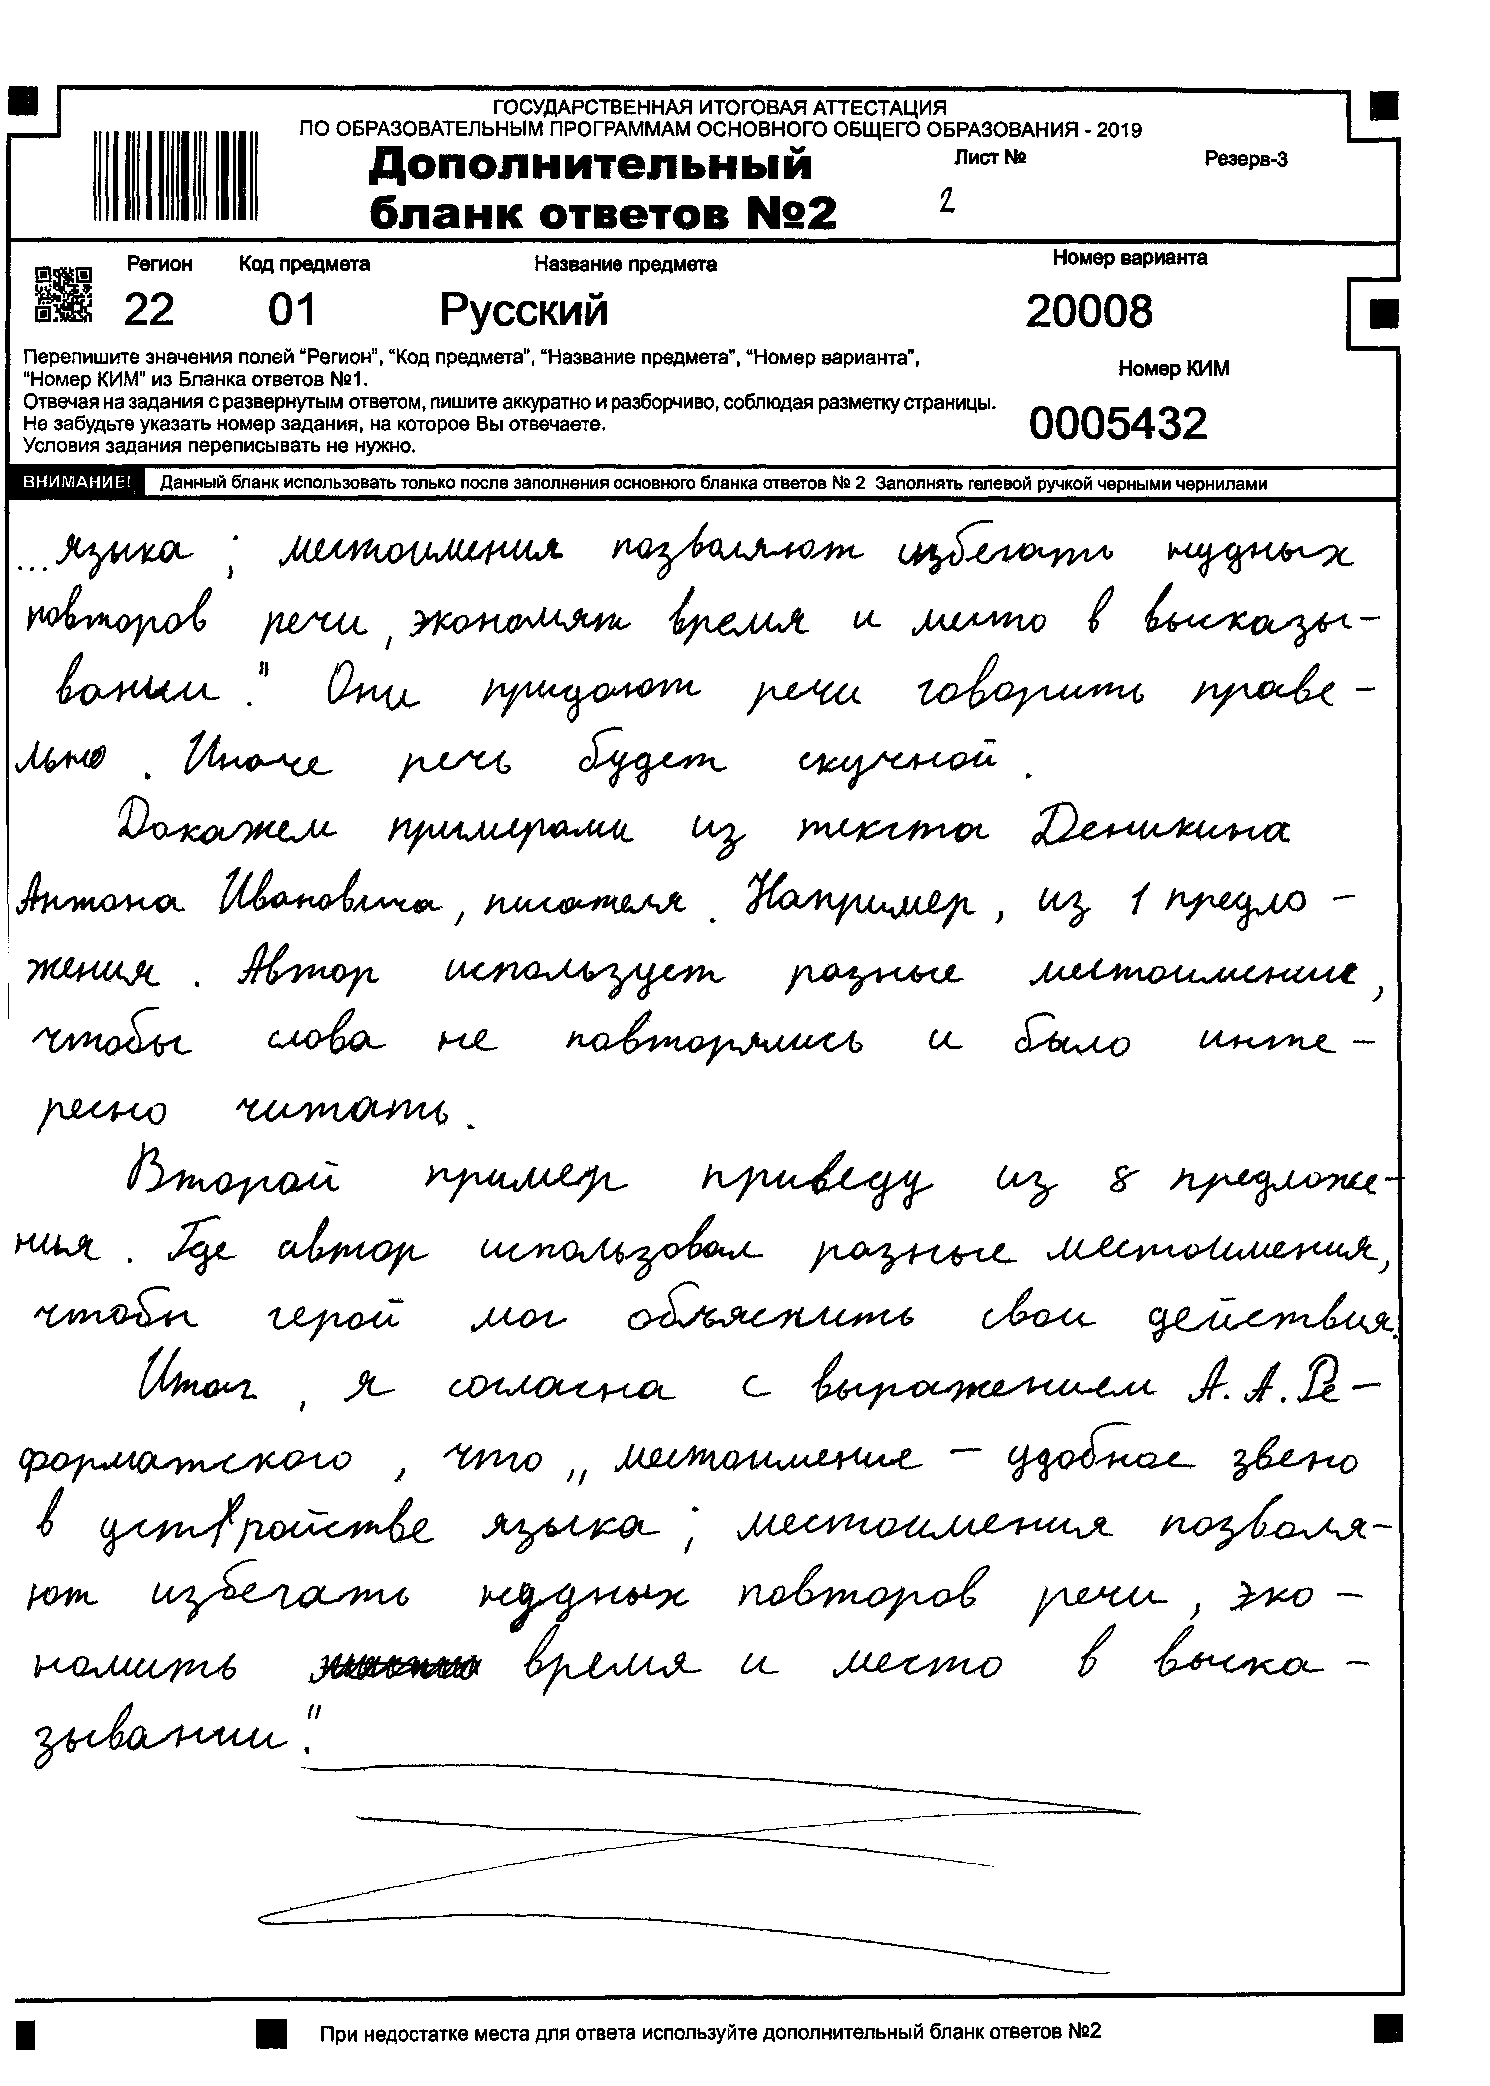 ГОСУДАРСТВЕННАЯ ИТОГОВАЯ АТТЕСТАЦИЯ
ПО ОБРАЗОВАТЕЛЬНЫМ ПРОГРАММАМ ОСНОВНОГО ОБЩЕГО ОБРАЗОВАНИЯ - 2019
Дополнительный
бланк ответов №2
Лист №
2
Резерв-3
Регион Код предмета Название предмета Номер варианта
22 01 Русский 20008
Перепишите значения полей "Регион", "Код предмета", "Название предмета", "Номер варианта",
"Номер КИМ" из Бланка ответов №1.
Отвечая на задания с развернутым ответом, пишите аккуратно и разборчиво, соблюдая разметку страницы.
Не забудьте указать номер задания, на которое Вы отвечаете.
Условия задания переписывать не нужно.
Номер КИМ
0005432
ВНИМАНИЕ! Данный бланк использовать только после заполнения основного бланка ответов № 2 Заполнять гелевой ручкой черными чернилами
...языка; местоимения позволяют избегать нудных
повторов речи, экономят время и место в высказы-
вании." Они придают речи говорить праве-
льно. Иначе речь будет скучной.
Докажем примерами из текста Деникина
Антона Ивановича, писателя. Например, из 1 предло-
жения. Автор использует разные местоимение,
чтобы слова не повторялись и было инте-
ресно читать.
Второй пример приведу из 8 предложе-
ния. Где автор использовал разные местоимения,
чтобы герой мог объяснить свои действия.
Итог, я согласна с выражением А.А.Ре-
форматского, что „местоимение - удобное звено
в устройстве языка; местоимения позволя-
ют избегать нудных повторов речи, эко-
номить время и место в выска-
зывании."
При недостатке места для ответа используйте дополнительный бланк ответов №2